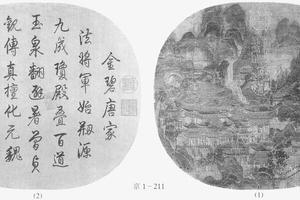 金碧唐家
法將軍始瓶源
九成瓊殿叠百道
玉泉翻避暑曾貞
觀傳真擅化元魏
(2)
京1-211
(1)